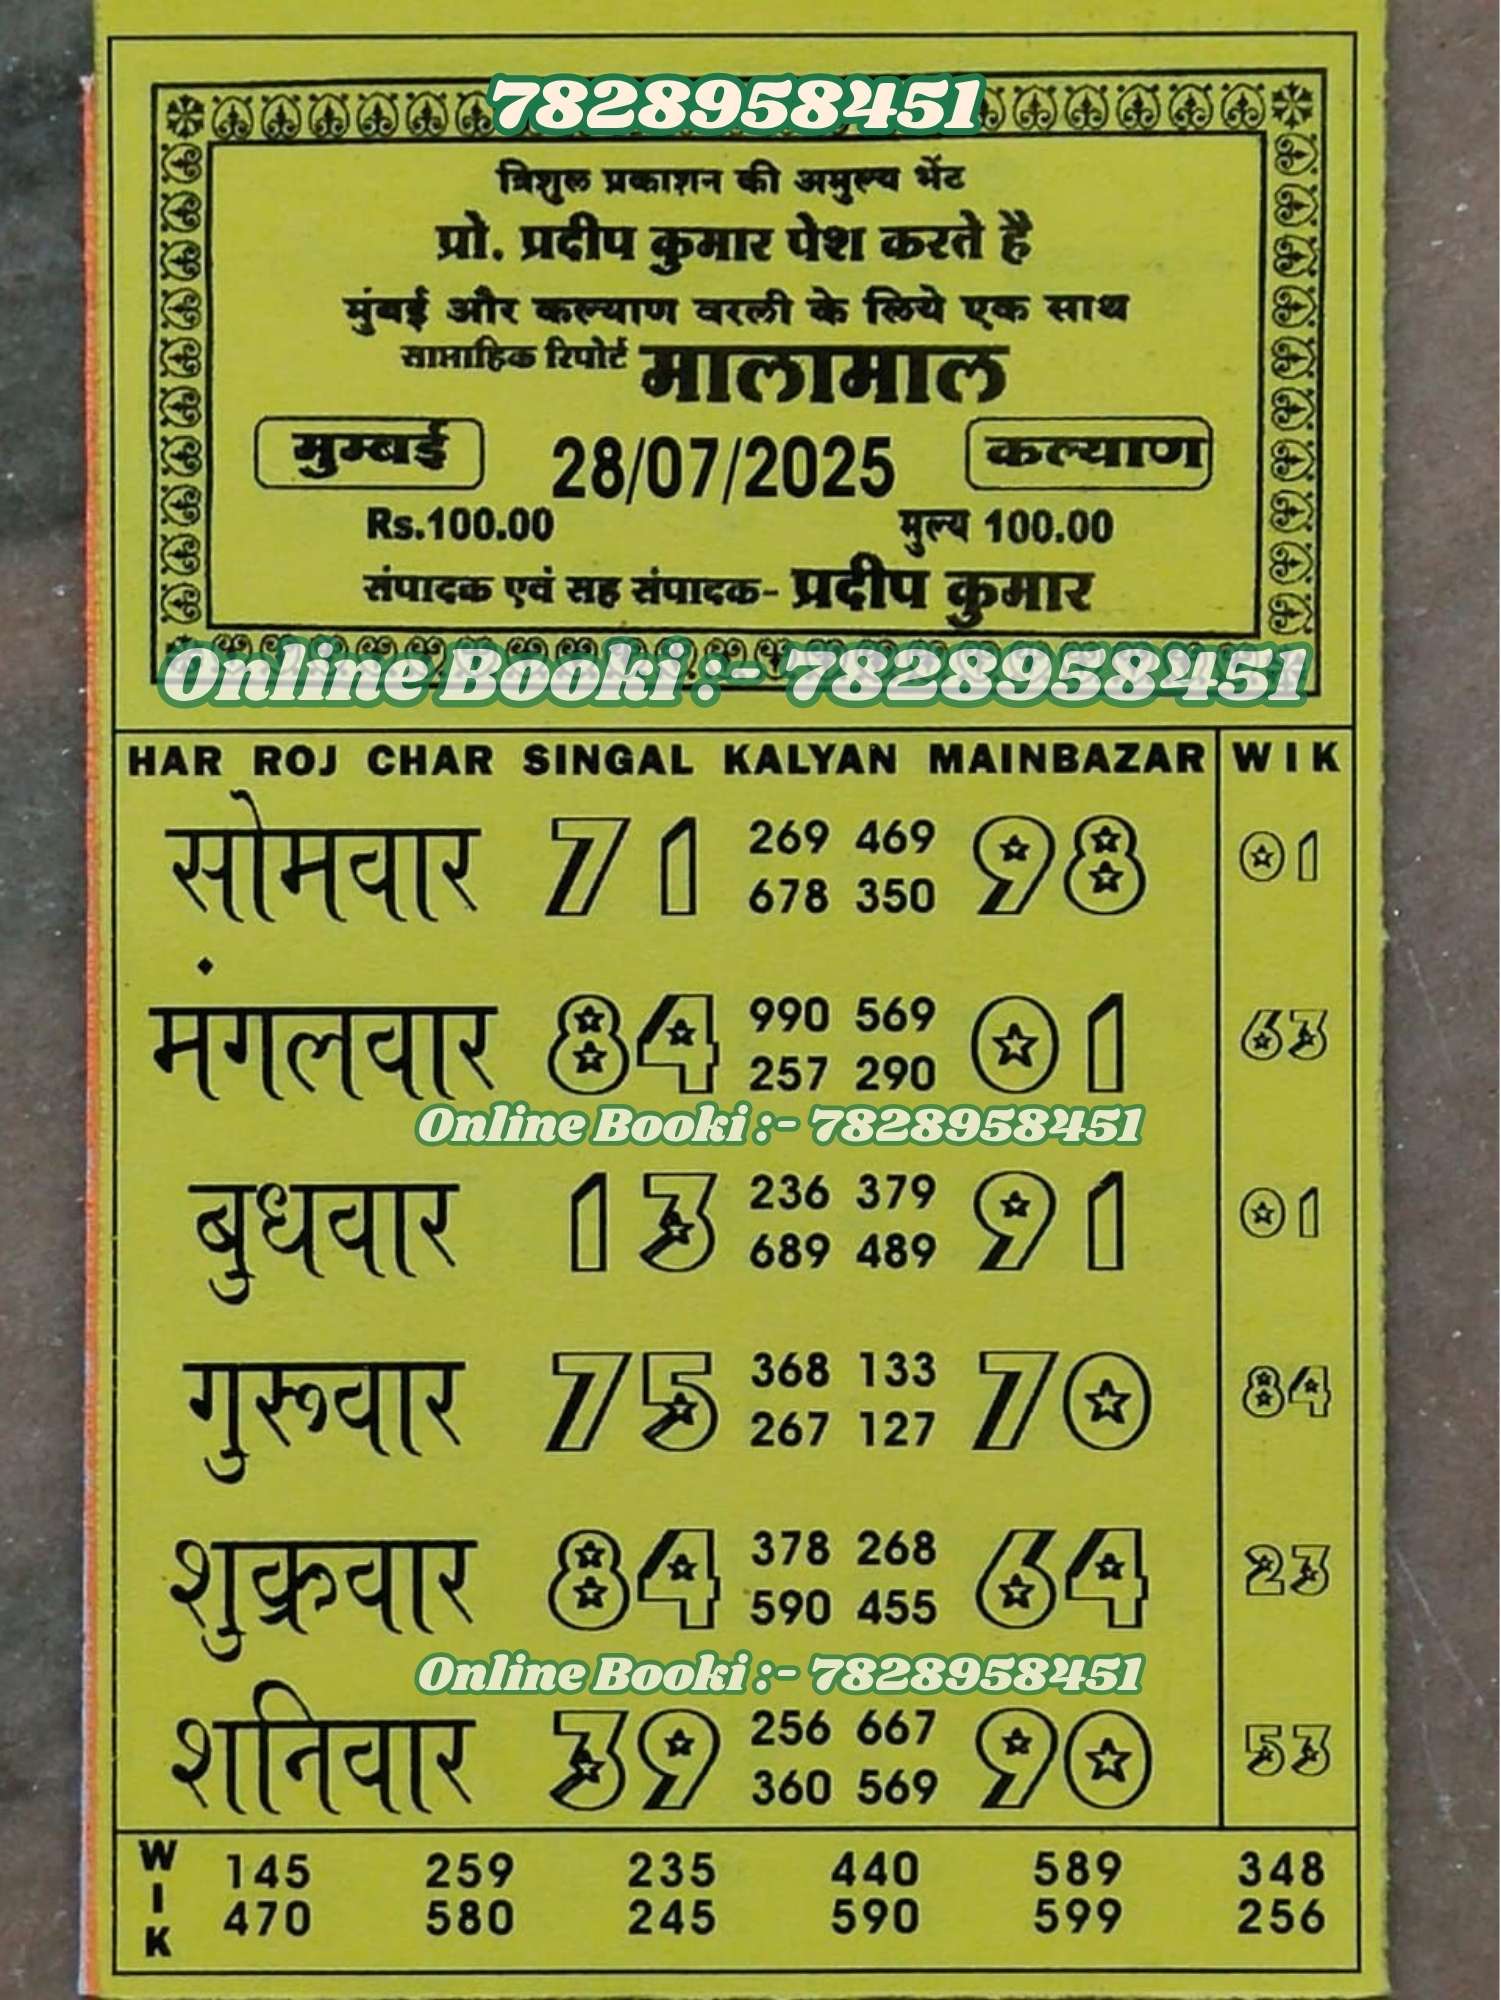 7828958451
त्रिशुल प्रकाशन की अमुल्य भेंट
प्रो. प्रदीप कुमार पेश करते है
मुंबई और कल्याण वरली के लिये एक साथ
साप्ताहिक रिपोर्ट मालामाल
मुम्बई 28/07/2025 कल्याण
Rs.100.00 मुल्य 100.00
संपादक एवं सह संपादक- प्रदीप कुमार
Online Booki :- 7828958451
HAR ROJ CHAR SINGAL KALYAN MAINBAZAR WIK
सोमवार 71 269 469 98 01
678 350
मंगलवार 84 990 569 01 63
257 290
Online Booki :- 7828958451
बुधवार 13 236 379 91 01
689 489
गुरूवार 75 368 133 70 84
267 127
शुक्रवार 84 378 268 64 23
590 455
Online Booki :- 7828958451
शनिवार 39 256 667 90 53
360 569
WIK 145 259 235 440 589 348
470 580 245 590 599 256